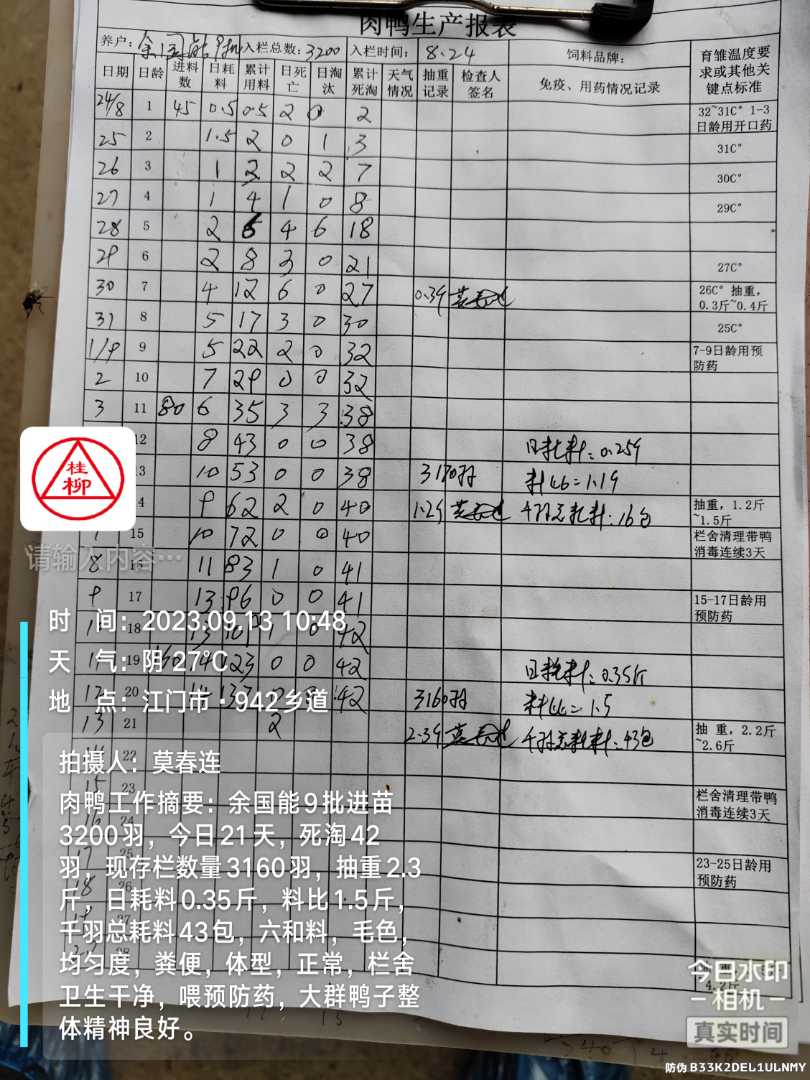 肉鸭生产报表
养户: 余国能9批 入栏总数: 3200 入栏时间: 8.24 饲料品牌: 育雏温度要求或其他关键点标准
日期 日龄 进料数 日耗料 累计用料 日死亡 日淘汰 累计死淘 天气情况 抽重记录 检查人签名 免疫、用药情况记录
24/8 1 45 0.5 0.5 2 0 2 32~31C° 1-3日龄用开口药
25 2 1.5 2 0 1 3 31C°
26 3 1 3 2 2 7 30C°
27 4 1 4 1 0 8 29C°
28 5 2 6 4 6 18
29 6 2 8 3 0 21 27C°
30 7 4 12 6 0 27 0.39 26C° 抽重,0.3斤~0.4斤
31 8 5 17 3 0 30 25C°
1/9 9 5 22 2 0 32 7-9日龄用预防药
2 10 7 29 0 0 32
3 11 80 6 35 3 3 38
12 8 43 0 0 38 日耗料:0.259
13 10 53 0 0 38 3170羽 料比=1.19
14 9 62 2 0 40 1.29 千羽总耗料:16包 抽重,1.2斤~1.5斤
15 10 72 0 0 40 栏舍清理带鸭消毒连续3天
8 16 11 83 1 0 41
9 17 13 96 0 0 41 15-17日龄用预防药
18 13 1 0 42
19 14 123 0 0 42 日耗料:0.35斤
12 20 14 0 42 3160羽 料比=1.5
13 21 2 2.39 千羽总耗料:43包 抽重,2.2斤~2.6斤
22
23 栏舍清理带鸭消毒连续3天
17 23-25日龄用预防药
18
桂柳
请输入内容…
时 间:2023.09.13 10:48
天 气:阴 27℃
地 点:江门市·942乡道
拍摄人:莫春连
肉鸭工作摘要:余国能9批进苗
3200羽,今日21天,死淘42
羽,现存栏数量3160羽,抽重2.3
斤,日耗料0.35斤,料比1.5斤,
千羽总耗料43包,六和料,毛色,
均匀度,粪便,体型,正常,栏舍
卫生干净,喂预防药,大群鸭子整
体精神良好。
今日水印
相机
真实时间
防伪 B33K2DEL1ULNMY